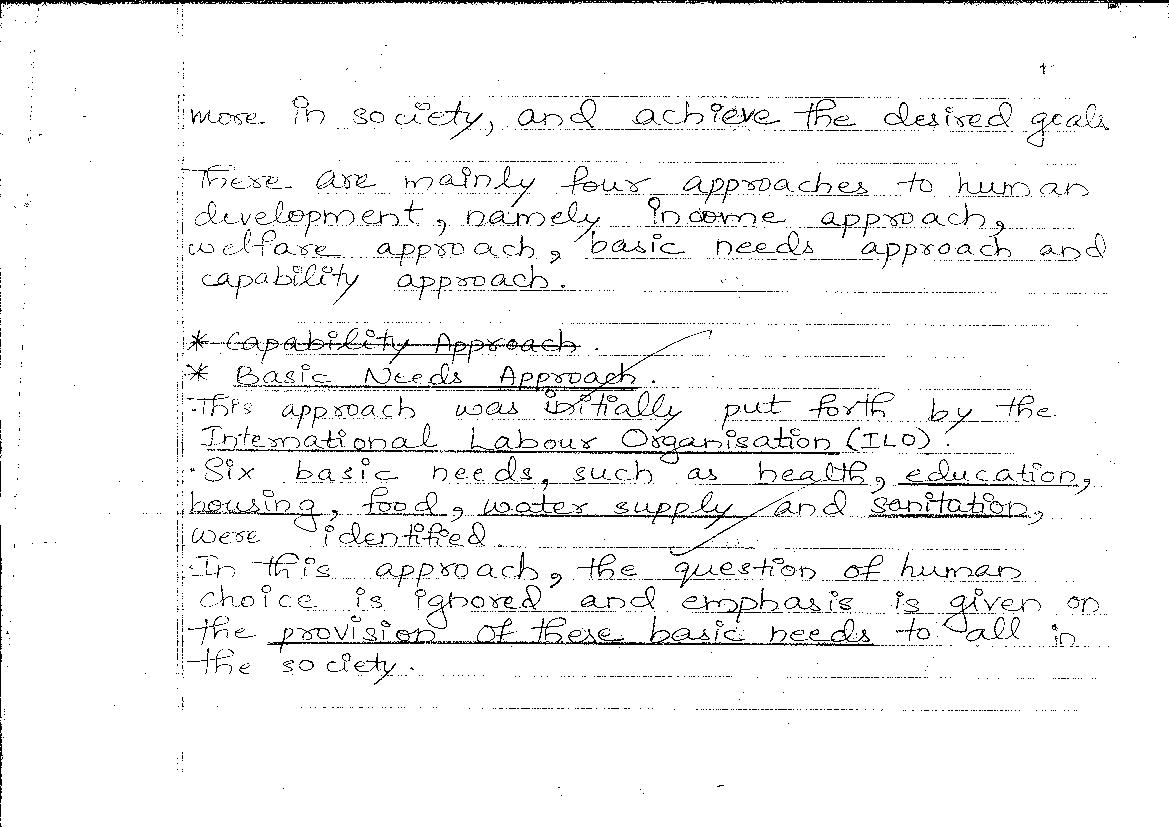 more in society, and achieve the desired goals
There are mainly four approaches to human
development, namely income approach,
welfare approach, basic needs approach and
capability approach.
* Capability Approach.
* Basic Needs Approach.
This approach was initially put forth by the
International Labour Organisation (ILO).
Six basic needs, such as health, education,
housing, food, water supply and sanitation,
were identified
In this approach, the question of human
choice is ignored and emphasis is given on
the provision of these basic needs to all in
the society.